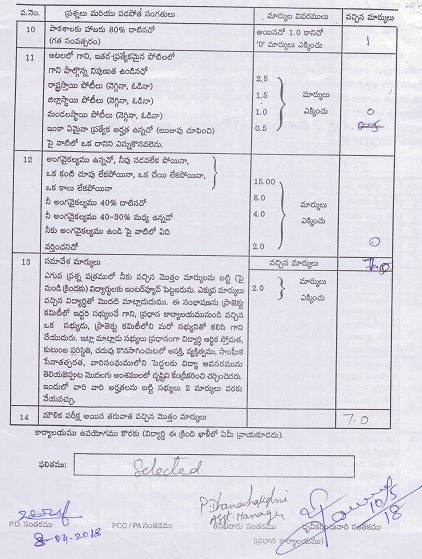 వ.నెం. ప్రశ్నలు మరియు పడపోత సంగతులు మార్కుల వివరములు వచ్చిన మార్కులు
10 పాఠశాలకు హాజరు 80% దాటినచో అయినచో 1.0 కానిచో
(గత సంవత్సరం) '0' మార్కులు ఎక్కించు 1
11 ఆటలో గాని, ఇతర ప్రత్యేకమైన పోటీలలో
గాని పాల్గొన్న నిపుణత ఉండినచో 2.5
రాష్ట్రస్థాయి పోటీలు (నెగ్గినా, ఓడినా) 1.5 మార్కులు
జిల్లాస్థాయి పోటీలు (నెగ్గినా, ఓడినా) 1.0 ఎక్కించు 0
మండలస్థాయి పోటీలు (నెగ్గినా, ఓడినా) 0.5
ఇంకా ఏమైనా ప్రత్యేక అర్హత ఉన్నచో (ఋజువు చూపించి)
పై వాటిలో ఒక దానిని ఎన్నుకొనవలెను.
12 అంగవైకల్యము ఉన్నచో, నీవు నడవలేక పోయినా,
ఒక కంటి చూపు లేకపోయినా, ఒక చేయి లేకపోయినా,
ఒక కాలు లేకపోయినా 15.00
నీ అంగవైకల్యము 40% దాటినచో 8.0 మార్కులు
నీ అంగవైకల్యము 40-30% మధ్య ఉన్నచో 4.0 ఎక్కించు
నీకు అంగవైకల్యము ఉండి పై వాటిలో ఏది
వర్తించనిచో 2.0 0
13 సమావేశ మార్కులు వచ్చిన మార్కులు
ఎగువ ప్రశ్న పత్రములో నీకు వచ్చిన మొత్తం మార్కులను బట్టి (పై
నుండి క్రిందకు) విద్యార్థులకు ఇంటర్వ్యూవ్ పెట్టబడును. ఎక్కువ మార్కులు 2.0 మార్కులు
వచ్చిన విద్యార్థితో మొదటి మాట్లాడుదుము. ఈ సంభాషణను ప్రాజెక్టు ఎక్కించు
కమిటీలో ఇద్దరి సభ్యులచే గాని, ప్రధాన కార్యాలయమునుండి వచ్చిన
ఒక సభ్యుడు, ప్రాజెక్టు కమిటీలోని మరో సభ్యునితో కలిసి గాని
చేయుదురు. ఇట్లా మాట్లాడు సభ్యులు ప్రధానంగా విద్యార్థి ఆర్థిక స్తోమత,
కుటుంబ పరిస్థితి, చదువు కొనసాగించుటలో ఆసక్తి, వ్యక్తిత్వము, సాంఘిక
సేవాతత్పరత, వారిసంఘములోని పెద్దలకు విద్యా అవసరమును
తెలియజెప్పుట మొదలగు అంశములలో దృష్టిని కేంద్రీకరించి చర్చించెదరు.
ఇందులో వారి వారి అర్హతలను బట్టి సభ్యులు 2 మార్కులు వరకు
వేయవచ్చు.
14 మౌఖిక పరీక్ష అయిన తరువాత వచ్చిన మొత్తం మార్కులు 7.0
కార్యాలయము ఉపయోగము కొరకు (విద్యార్థి ఈ క్రింది ఖాళీలో ఏమీ వ్రాయకూడదు).
ఫలితము: Selected
P Dhanalakshmi
Asst Manager
10/5
18
P.D. సంతకము PCC / PA సంతకము తనిఖీదారు సంతకము ధృవీకరించువారి సంతకము
8-04-2018 (ప్రధాన కార్యాలయము)